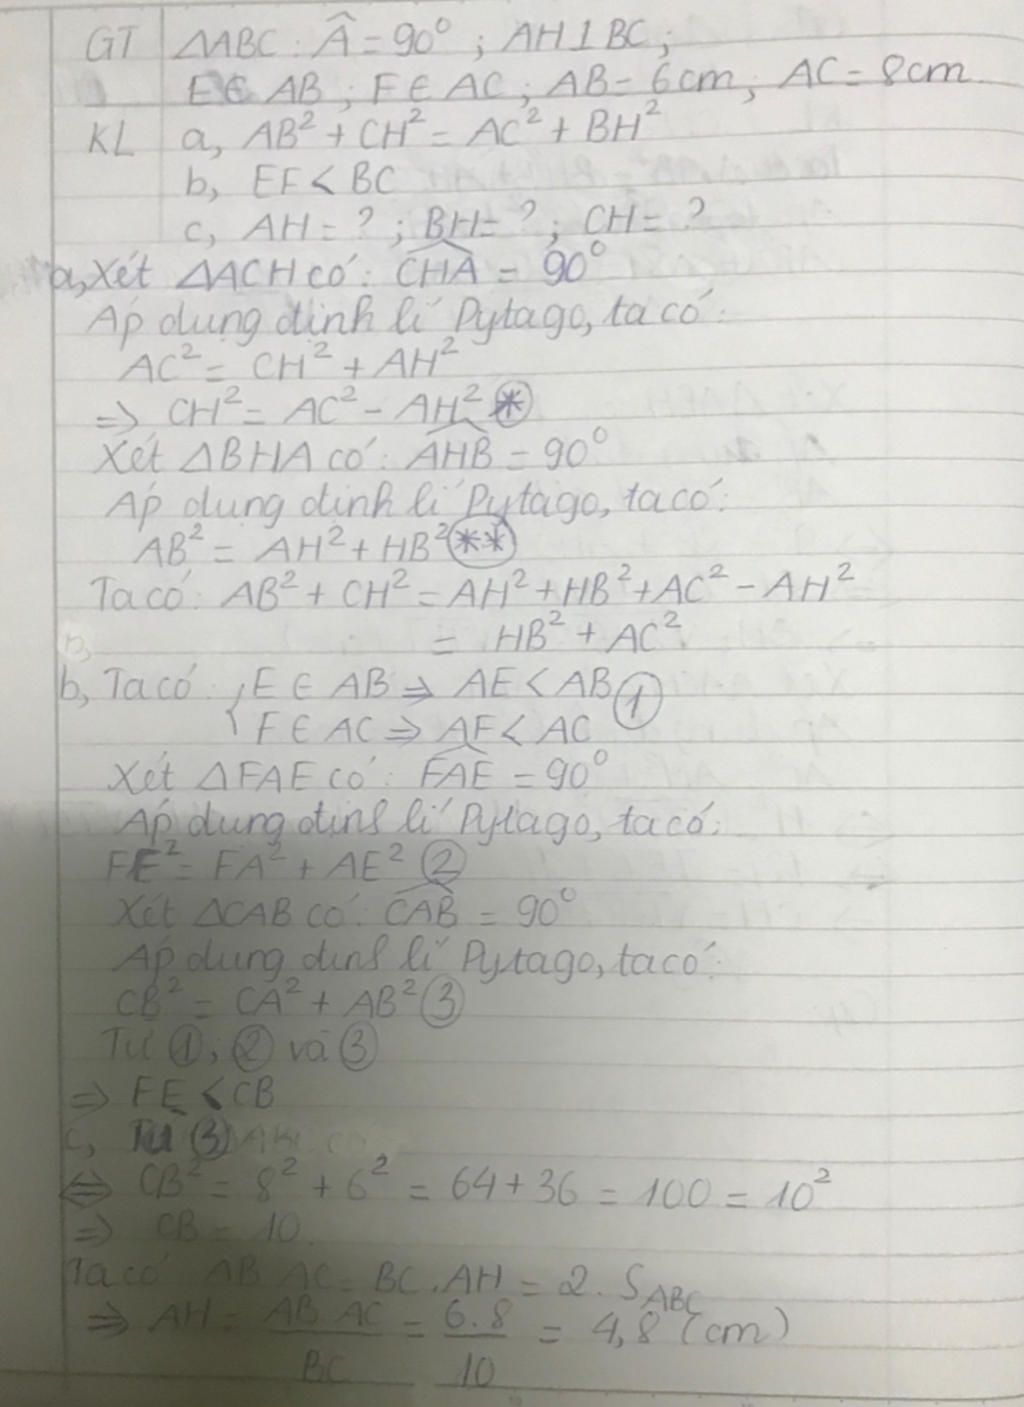 GT ΔABC : Â = 90° ; AH ⊥ BC ;
E ∈ AB ; F ∈ AC ; AB = 6cm ; AC = 8cm
KL a, AB² + CH² = AC² + BH²
b, EF < BC
c, AH = ? ; BH = ? ; CH = ?
a, Xét ΔACH có : CHA = 90°
Áp dụng định lí Pytago, ta có :
AC² = CH² + AH²
⇒ CH² = AC² - AH² (*)
Xét ΔBHA có : AHB = 90°
Áp dụng định lí Pytago, ta có :
AB² = AH² + HB² (**)
Ta có : AB² + CH² = AH² + HB² + AC² - AH²
= HB² + AC²
b, Ta có : { E ∈ AB ⇒ AE < AB (1)
F ∈ AC ⇒ AF < AC
Xét ΔFAE có : FAE = 90°
Áp dụng định lí Pytago, ta có :
FE² = FA² + AE² (2)
Xét ΔCAB có : CAB = 90°
Áp dụng định lí Pytago, ta có :
CB² = CA² + AB² (3)
Từ (1), (2) và (3)
⇒ FE < CB
c, Từ (3)
⇔ CB² = 8² + 6² = 64 + 36 = 100 = 10²
⇒ CB = 10
Ta có AB . AC = BC . AH = 2 . S_ABC
⇒ AH = AB . AC / BC = 6.8 / 10 = 4,8 (cm)